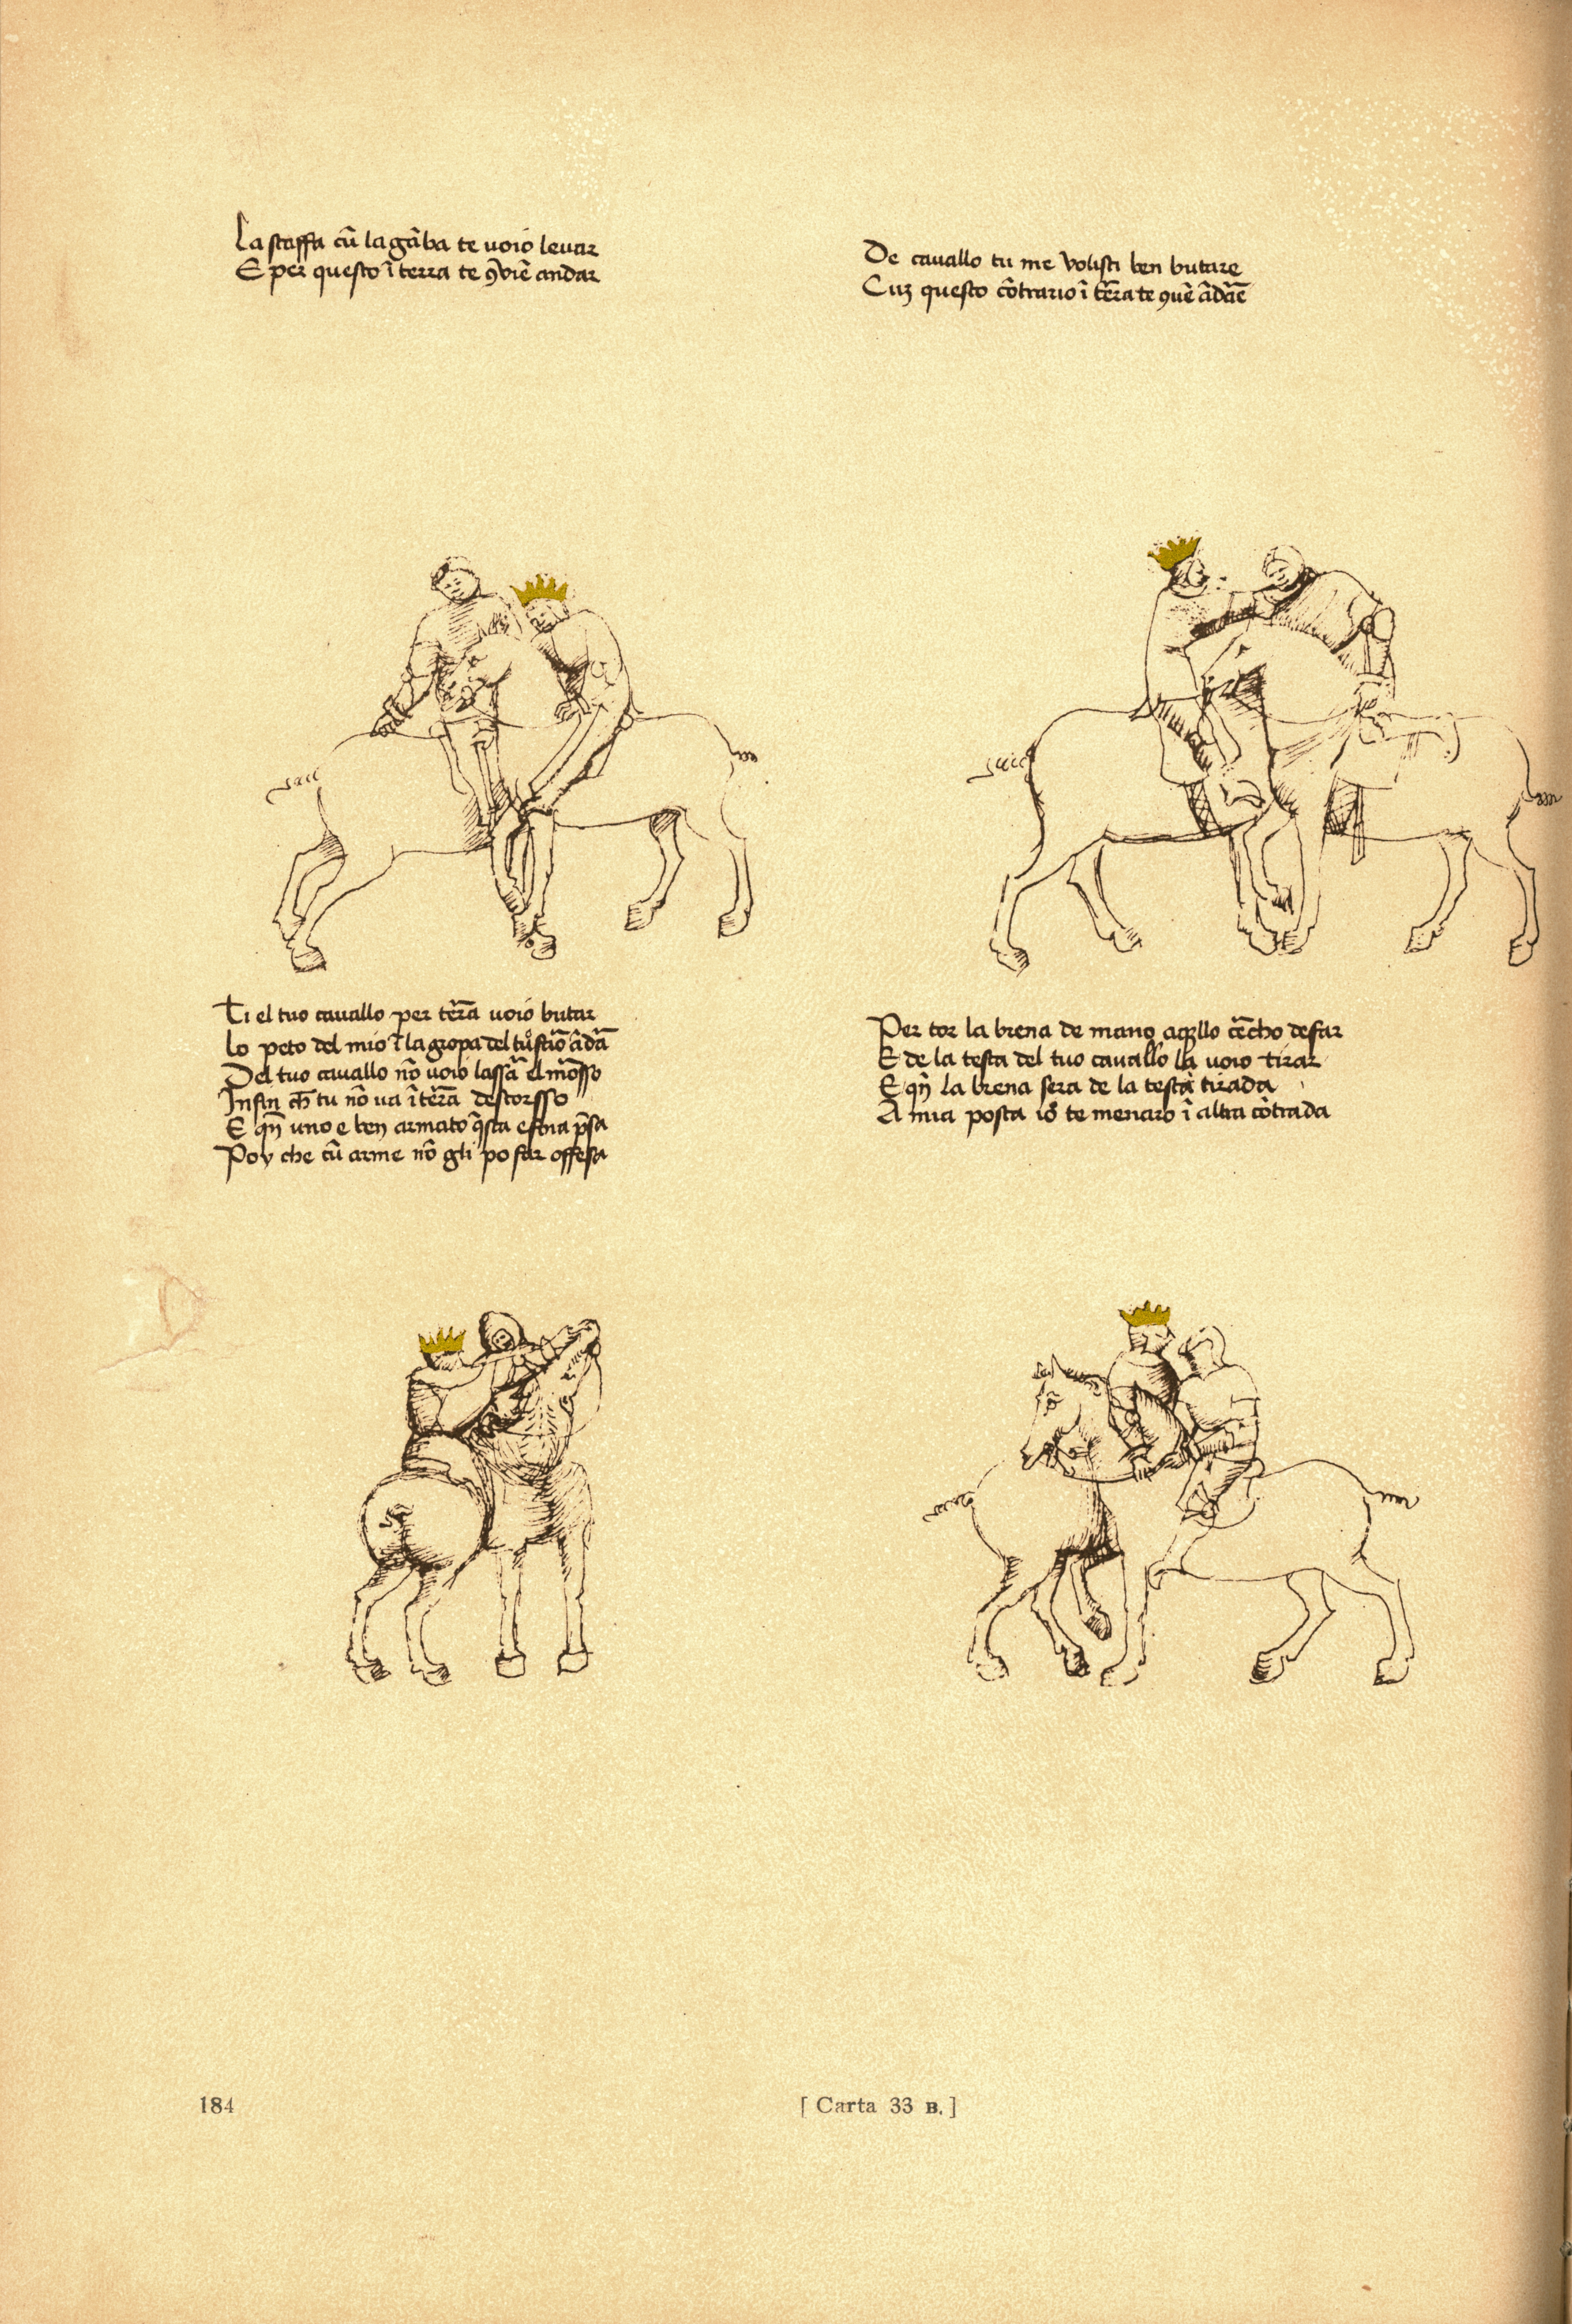 La staffa cū la gāba te uoio leuar
E per questo ī terra te ꝯuiē andar
De cauallo tu me volisti ben butare
Cuz questo cōtrario ī tēra te ꝯuē ādāe
Ti el tuo cauallo per tēra uoio butar
lo peto del mio ī la gropa del
Del tuo cauallo nō uoio lassā el mōsso
Infin ch̄ tu nō ua ī tēra descorsso
E qn̄ uno e ben armato q̄sta e p̄sa
Poy che cū arme nō gli po far offesa
Per tor la brena de mano aq̄llo cēcho desfar
E de la testa del tuo cauallo la uoio tirar
E qn̄ la brena sera de la testa tirada
A mia posta io te menaro ī altra cōtrada
184
[ Carta 33 B. ]